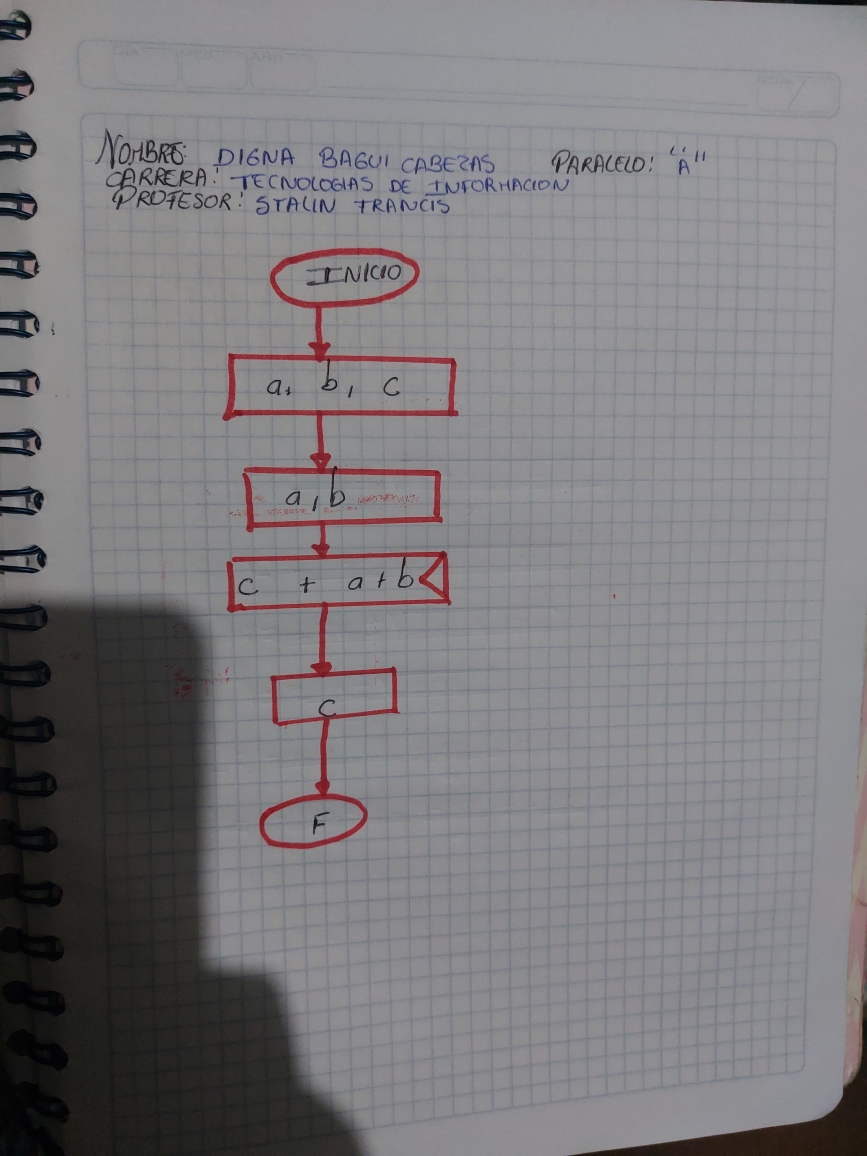 NOMBRE: DIGNA BAGUI CABEZAS PARALELO: "A"
CARRERA: TECNOLOGIAS DE INFORMACION
PROFESOR: STALIN FRANCIS
INICIO
a, b, c
a, b
c + a + b
c
F